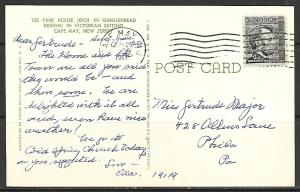 102-PINK HOUSE (RICH IN GINGERBREAD
DESIGN) IN VICTORIAN SETTING
CAPE MAY, NEW JERSEY
Dear Gertrude -
The House and the
Town are all you said
they would be - and
then some. We are
delighted with it all
and, even have nice
weather! We go to
Cold Spring Church today
as you suggested. Love -
Ella.
POST CARD
Miss Gertrude Major
428 Lane
Phila
Pa
19119